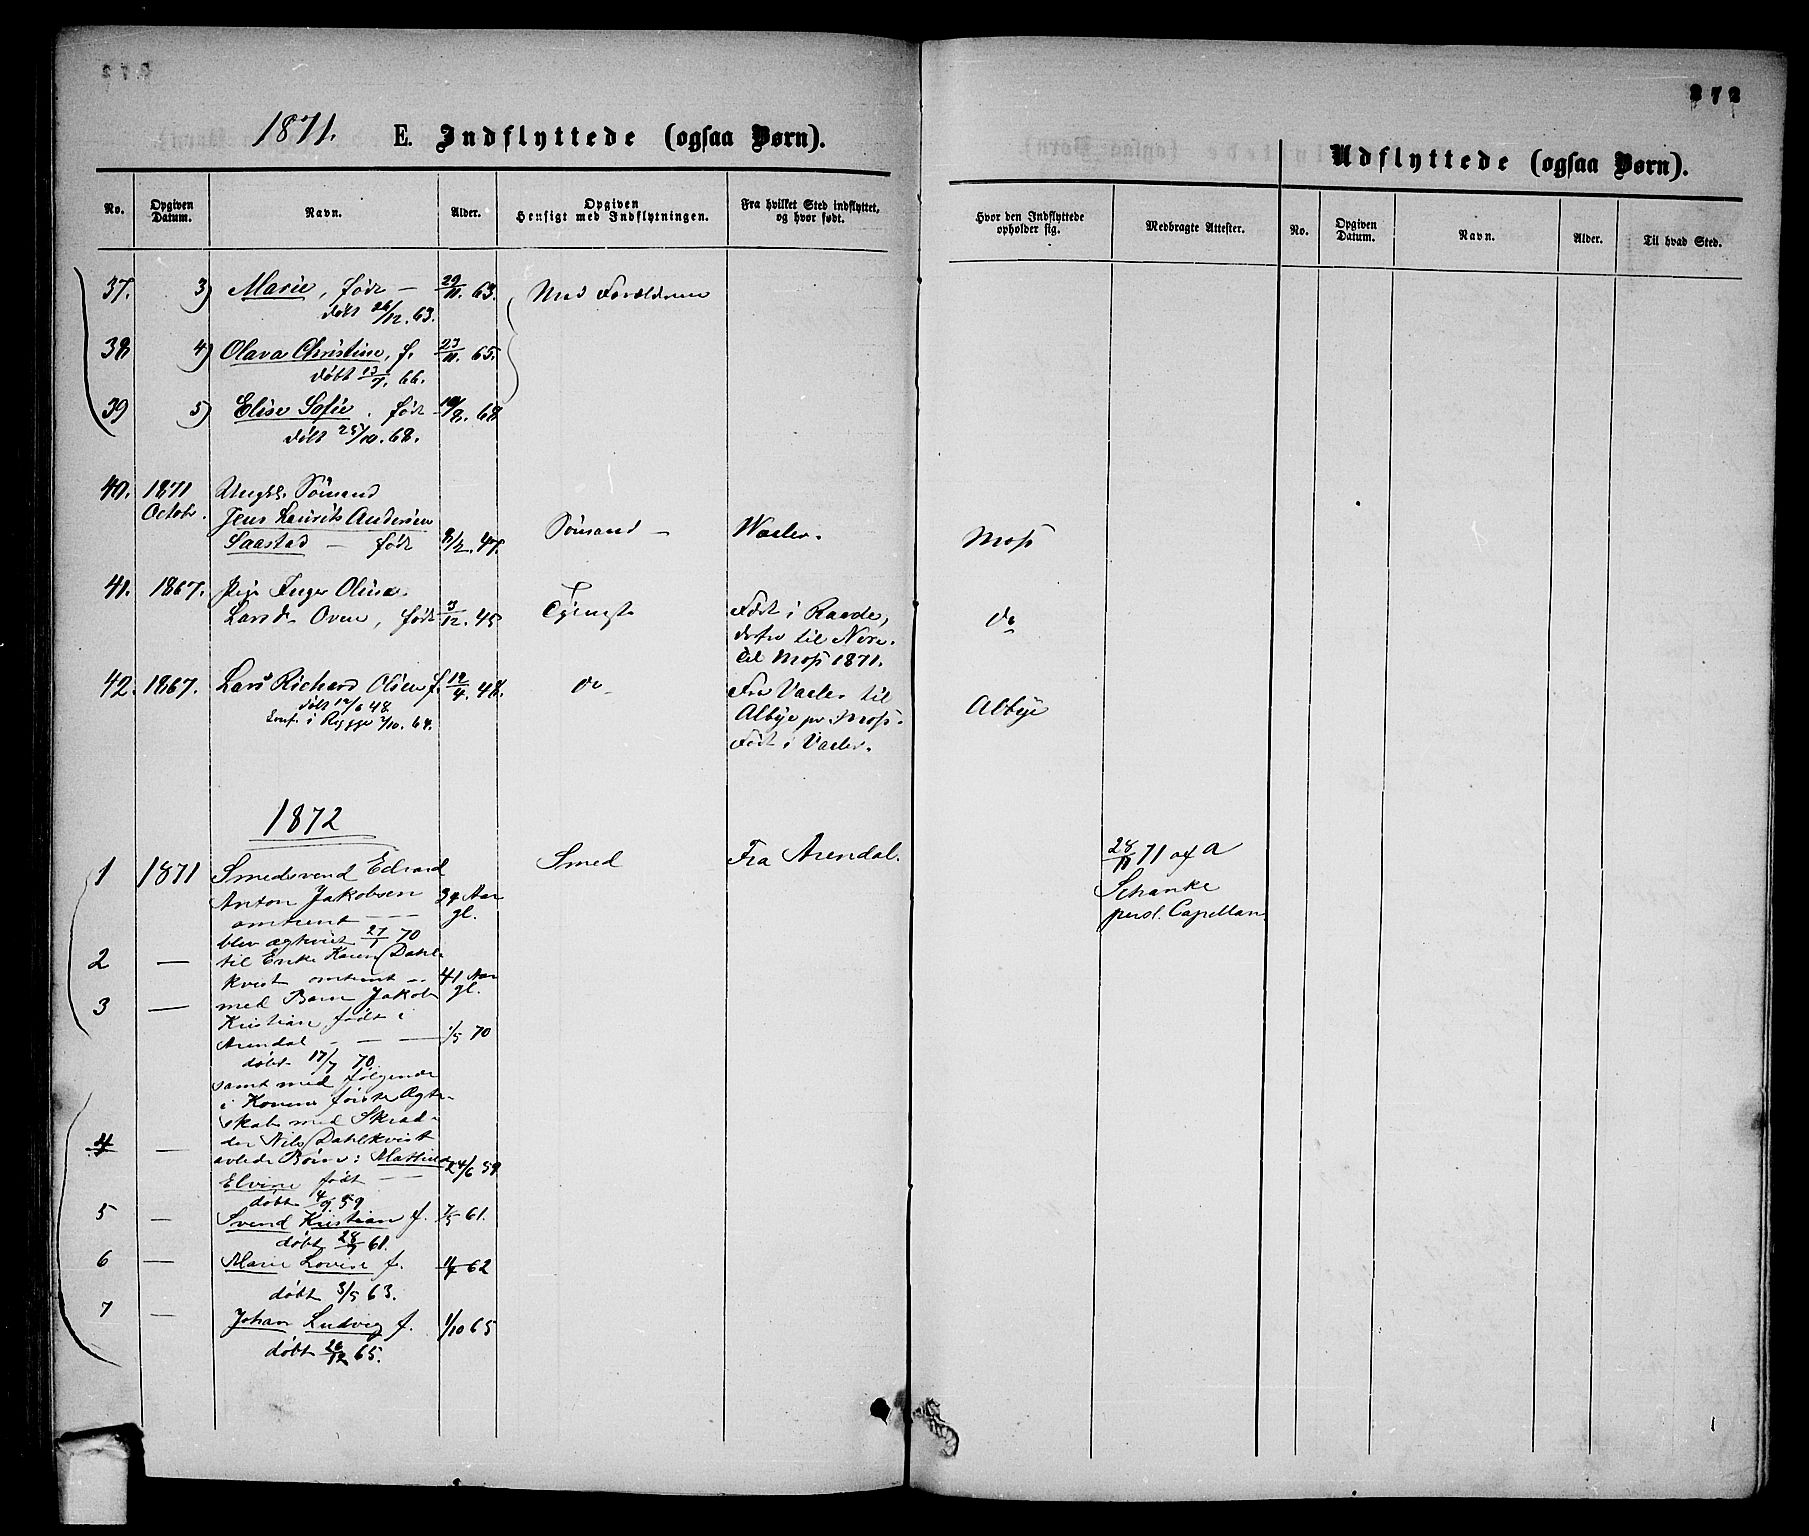 272
1871. E. Indflyttede (ogsaa Børn).
Udflyttede (ogsaa Børn).
No. Opgiven Datum. Navn. Alder. Opgiven Hensigt med Indflytningen. Fra hvilket Sted indflyttet, og hvor født. Hvor den Indflyttede opholder sig. Medbragte Attester. No. Opgiven Datum. Navn. Alder. Til hvad Sted.
37. 3) Marie, født – 29/11. 63. Med Forældrene
døbt 26/12. 63.
38 4) Olava Christine, f. 23/11. 65.
døbt 13/1. 66.
39 5) Elise Sofie. født 10/8. 68
døbt 25/10. 68.
40. 1871 Ungk. Sömand
Octobr. Jens Laurits Andersen
Saastad – født 8/2. 47. Sömand – Waaler. Moss
41. 1867. Pige Inger Olina
Larsd. Oven, født 3/12. 45 Tjeneste Født i Raade, do
derfra til
til Moss 1871.
42. 1867. Lars Richard Olsen f. 12/4. 48. do Fra Vaaler til
døbt 12/6 48. Albye pr. Moss. Albye
Conf. i Rygge /10. 64. Født i Vaaler.
1872
1 1871 Smedsvend Edvard Smed Fra Arendal. 28/11 71 af A
Anton Jakobsen 39 Aar Schanke
omtrent – – – gl. persl. Capellan
blev ægtviet 27/1 70
2 — til Enke Karen Dahl-
kvist omtrent – 41 Aar
3 — med Barn Jakob gl.
Kristian født i
Arendal – – – 1/5 70
døbt 17/7 70
samt med følgende
i Konens første Ægte-
skab med Skræd-
der Nils Dahlkvist
4 — avlede Børn: Mathilde 24/6 59
Elvine født – –
døbt 4/9 59
5 — Svend Kristian f. 7/5 61.
døbt 28/7 61.
6 — Marie Lovise f. 62
døbt 3/5 63.
7 — Johan Ludvig f. 1/10 65
døbt 26/12 65.